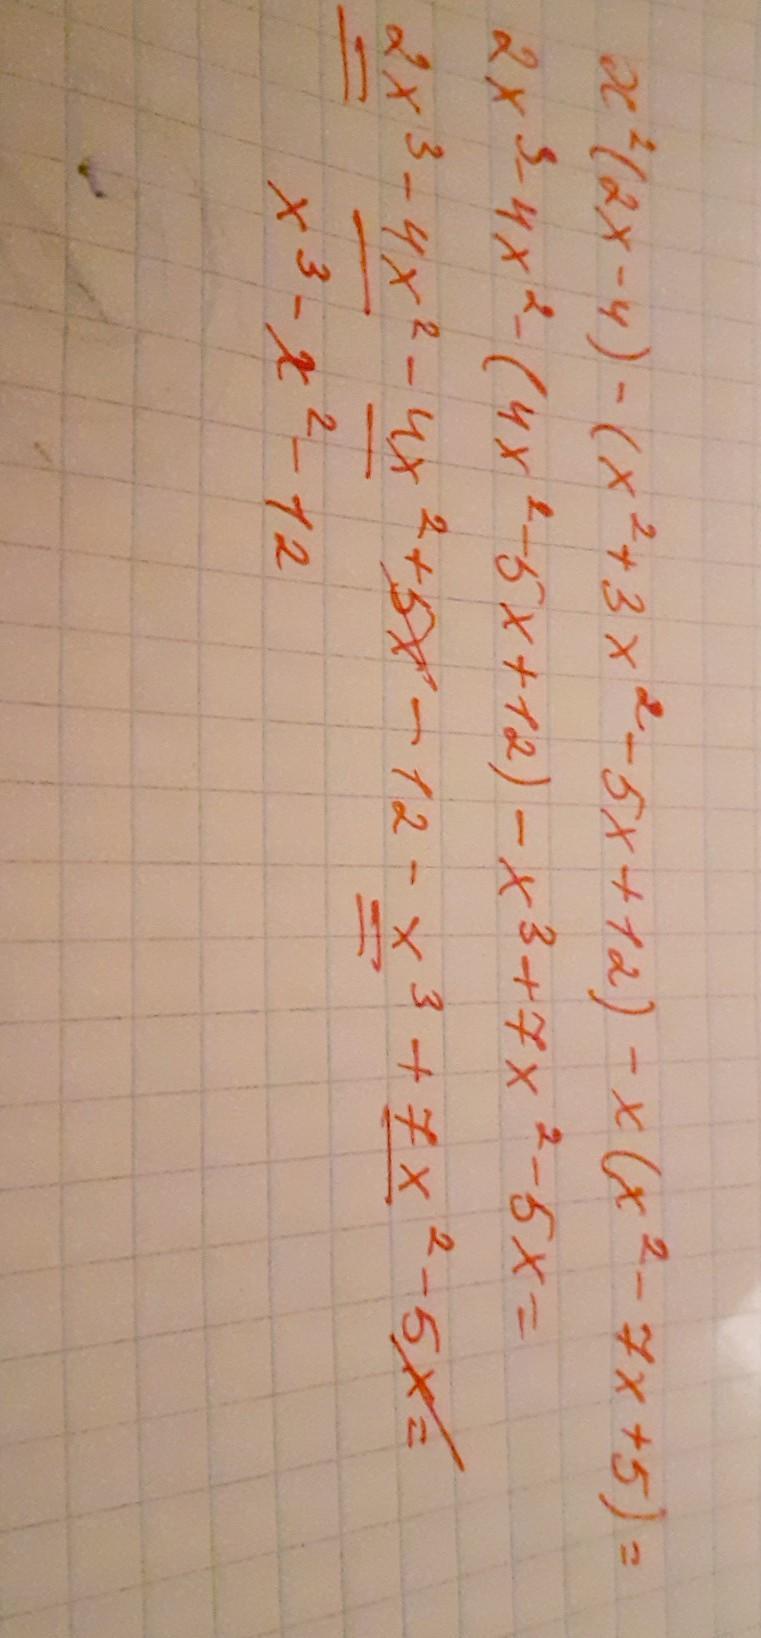 x²(2x-4)-(x²+3x²-5x+12)-x(x²-7x+5)=
2x³-4x²-(4x²-5x+12)-x³+7x²-5x=
2x³-4x²-4x²+5x-12-x³+7x²-5x=
x³-x²-12